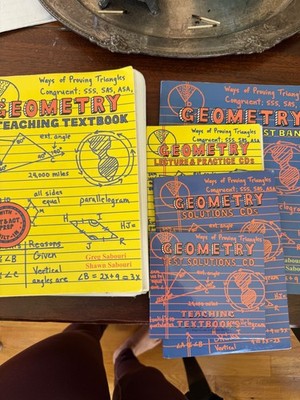 Ways of Proving Triangles
Congruent: SSS, SAS, ASA,
GEOMETRY
TEACHING TEXTBOOK
ext. angle
24,000 miles
all sides
equal
parallelogram
H
I
J
R
HJ=
WITH
Reasons
Given
Vertical
angles are
∠B = 2x+9 = 3x
Greg Sabouri
Shawn Sabouri
Ways of Proving Triangles
Congruent: SSS, SAS, ASA
GEOMETRY
Ways of Proving Triangles
Congruent: SSS, SAS, ASA
GEOMETRY
LECTURE & PRACTICE CDs
Ways of Proving Triangles
Congruent: SSS, SAS, ASA
GEOMETRY
SOLUTIONS CDs
Ways of Proving Triangles
Congruent: SSS, SAS, ASA
GEOMETRY
TEST SOLUTIONS CD
24,000 miles
TEACHING
TEXTBOOK
Reasons
Given
Vertical